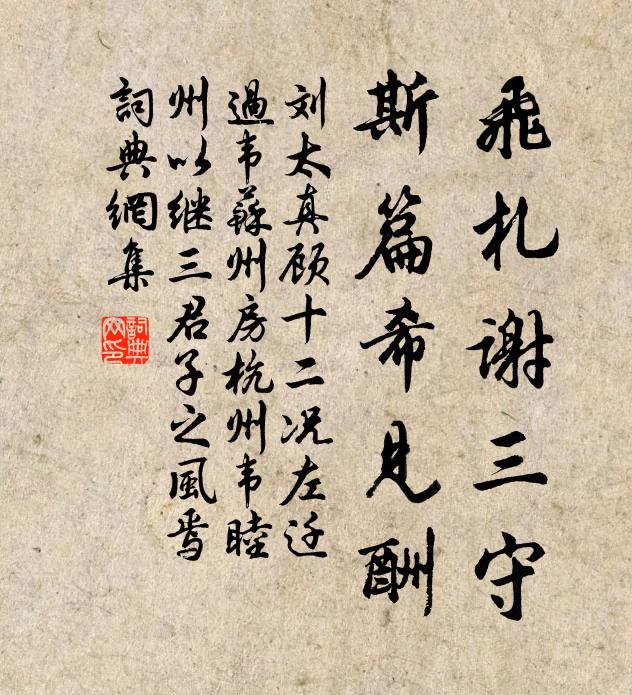 飛札謝三守
斯篇希見酬
刘太真顾十二况左迁
過韦蘇州房杭州韦睦
州以继三君子之風焉
詞典網集
詞典
网印